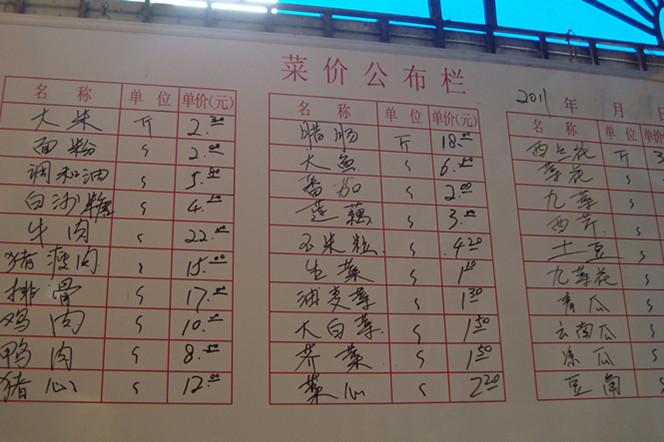 菜价公布栏
2011 年 月
名称 单位 单价(元)
大米 斤 2.
面粉 ς 2.
调和油 ς 5.
白沙糖 ς 4.
牛肉 ς 22.
猪瘦肉 ς 15.
排骨 ς 17.
鸡肉 ς 10.
鸭肉 ς 8.
猪心 ς 12.
名称 单位 单价(元)
腊肠 斤 18.
大鱼 ς 6.
番茄 ς 2.
莲藕 ς 3.
玉米粒 ς 4.20
生菜 ς 1
油麦菜 ς 1.30
大白菜 ς 1.50
芥菜 ς 1.50
菜心 ς 2.20
名称 单位 单价
西兰花 斤
菜花 ς
九菜 ς
西芹 ς
土豆 ς
九菜花 ς
青瓜 ς
云南瓜 ς
凉瓜 ς
豆角 ς